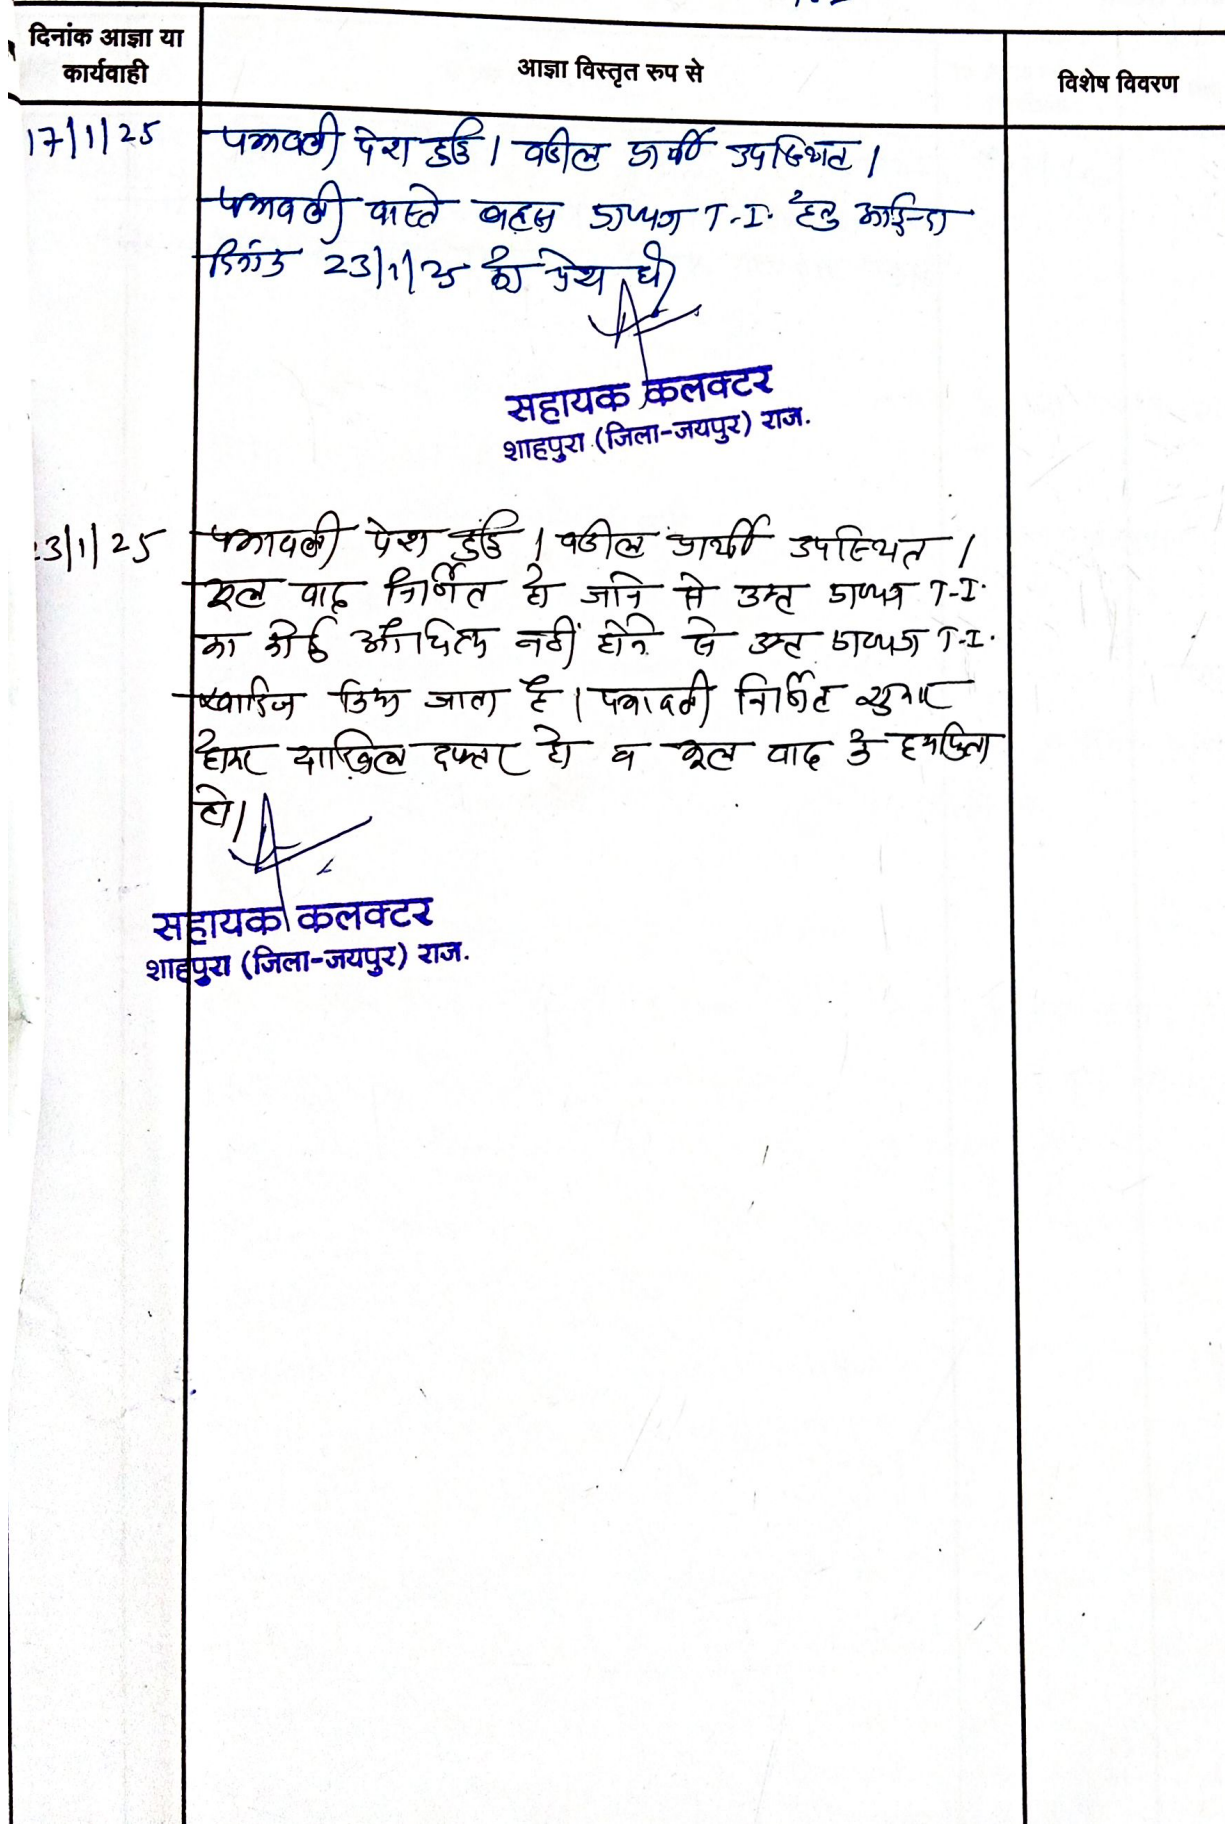 दिनांक आज्ञा या
कार्यवाही
आज्ञा विस्तृत रुप से
विशेष विवरण
17/1/25 पत्रावली पेश हुई। वकील प्रार्थी उपस्थित।
पत्रावली वास्ते बहस प्रा०पत्र T.I. हेतु आईन्दा
दिनांक 23/1/25 को पेश हो
सहायक कलक्टर
शाहपुरा (जिला-जयपुर) राज.
23/1/25 पत्रावली पेश हुई। वकील प्रार्थी उपस्थित।
मूल वाद निर्णित हो जाने से उक्त प्रा०पत्र T.I.
का कोई औचित्य नहीं होने से उक्त प्रा०पत्र T.I.
खारिज किया जाता है। पत्रावली निर्णित शुमार
होकर दाखिल दफ्तर हो व मूल वाद के हमफिता
हो।
सहायक कलक्टर
शाहपुरा (जिला-जयपुर) राज.